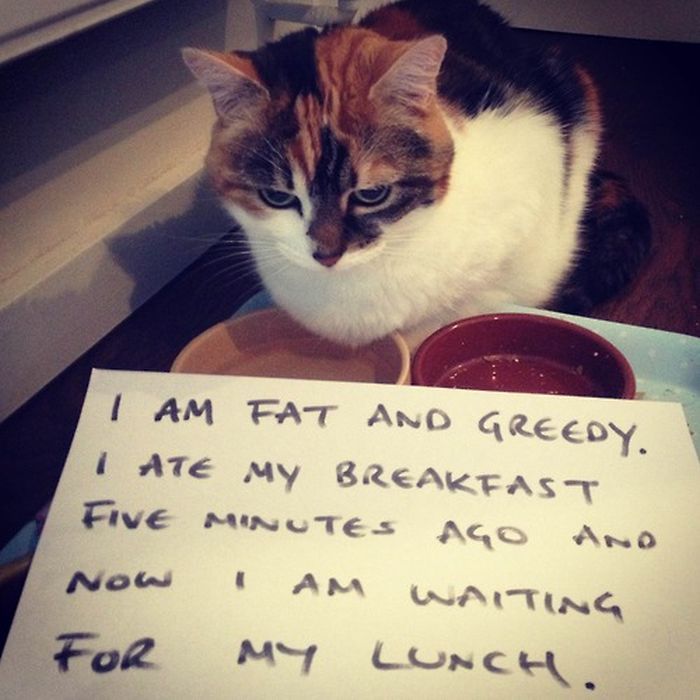 I AM FAT AND GREEDY.
I ATE MY BREAKFAST
FIVE MINUTES AGO AND
NOW I AM WAITING
FOR MY LUNCH.